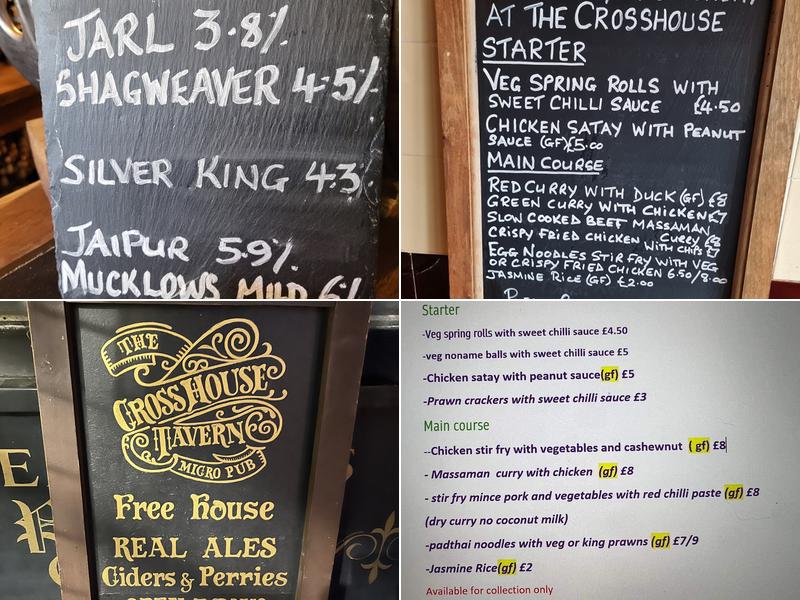 JARL 3.8%
SHAGWEAVER 4.5%
SILVER KING 4.3%
JAIPUR 5.9%
MUCKLOWS MILD 6%
AT THE CROSSHOUSE
STARTER
VEG SPRING ROLLS WITH
SWEET CHILLI SAUCE £4.50
CHICKEN SATAY WITH PEANUT
SAUCE (GF) £5.00
MAIN COURSE
RED CURRY WITH DUCK (GF) £8
GREEN CURRY WITH CHICKEN £7
SLOW COOKED BEEF MASSAMAN
CURRY £8
CRISPY FRIED CHICKEN
WITH CHIPS £7
EGG NOODLES STIR FRY WITH VEG
OR CRISPY FRIED CHICKEN 6.50/8.00
JASMINE RICE (GF) £2.00
THE
CROSSHOUSE
TAVERN
MICRO PUB
Free House
REAL ALES
Ciders & Perries
Starter
-Veg spring rolls with sweet chilli sauce £4.50
-veg noname balls with sweet chilli sauce £5
-Chicken satay with peanut sauce(gf) £5
-Prawn crackers with sweet chilli sauce £3
Main course
--Chicken stir fry with vegetables and cashewnut ( gf) £8
- Massaman curry with chicken (gf) £8
- stir fry mince pork and vegetables with red chilli paste (gf) £8
(dry curry no coconut milk)
-padthai noodles with veg or king prawns (gf) £7/9
-Jasmine Rice(gf) £2
Available for collection only